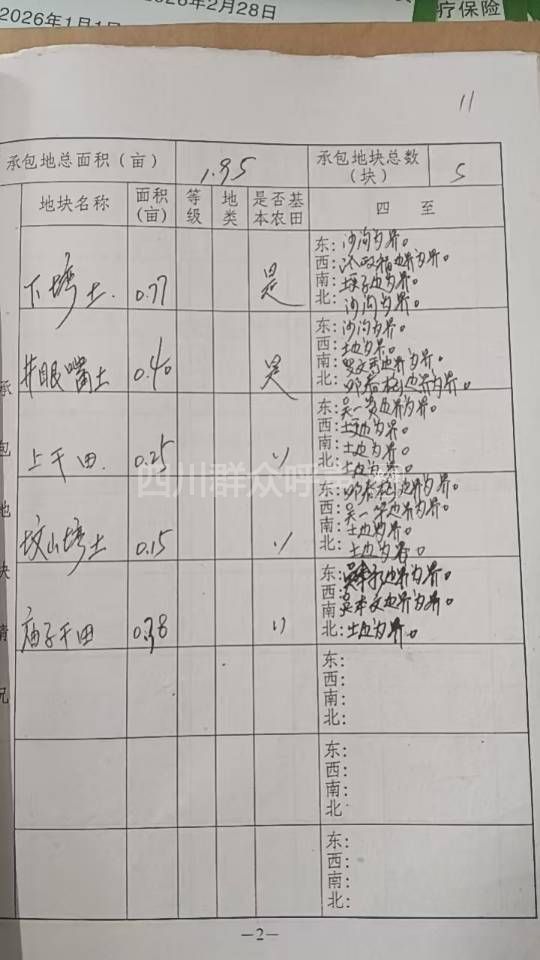 2026年2月28日
2026年1月1
疗保险
11
承包地总面积（亩）
1.95
承包地块总数（块）
5
地块名称
面积（亩）
等级
地类
是否基本农田
四 至
下塆土.
0.77
是
东：沙沟为界。
西：
南：
北：沙沟为界。
井眼嘴土
0.40
是
东：沙沟为界。
西：土边为界。
南：
北：邓春树边界为界。
上干田.
0.25
〃
东：吴一贵边界为界。
西：
南：土边为界。
北：土边为界。
坟山塆土
0.15
〃
东：邓春树边界为界。
西：
南：土边为界。
北：土边为界。
庙子干田
0.38
〃
东：
西：
南：吴本文边界为界。
北：土边为界。
东：
西：
南：
北：
东：
西：
南：
北：
东：
西：
南：
北：
承
包
地
块
情
况
—2—
四川群众呼声